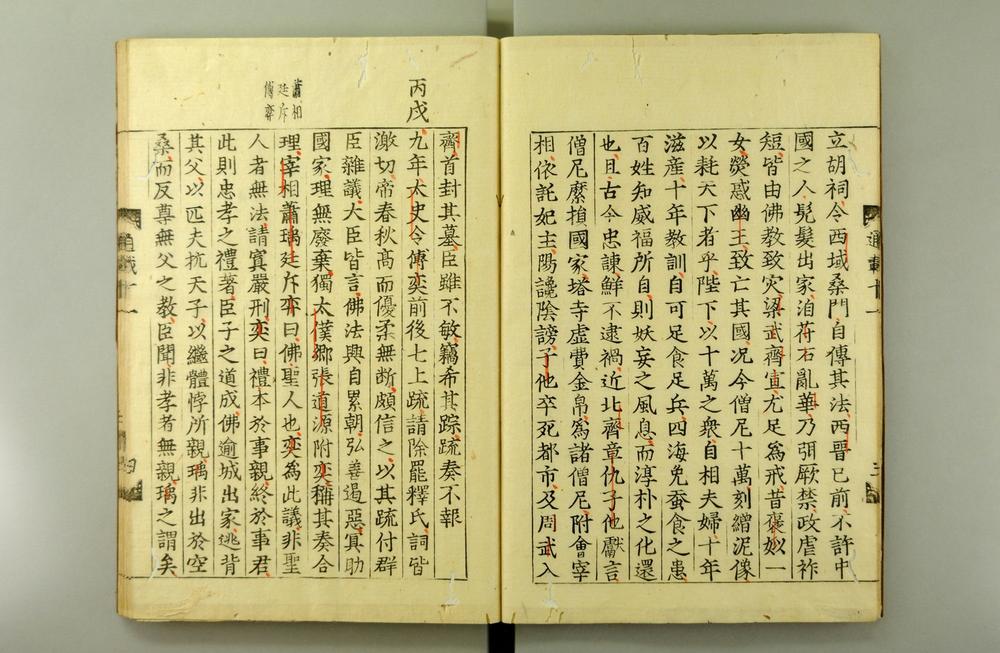 立胡祠今西域桑門自傳其法西晋已前不許中
國之人髠髮出家洎苻石亂華乃弭厥禁政虐祚
短皆由佛教致灾梁武齊宣尤足爲戒昔褒姒一
女熒惑幽王致亡其國况今僧尼十萬刻繒泥像
以耗天下者乎陛下以十萬之衆自相夫婦十年
滋産十年教訓自可足食足兵四海免蚕食之患
百姓知威福所自則妖妄之風息而淳朴之化還
也且古今忠諫鮮不逮禍近北齊章仇子他獻言
僧尼縻損國家塔寺虛費金帛爲諸僧尼附會宰
相依託妃主陽讒陰謗子他卒死都市及周武入
通載十一
齊首封其墓臣雖不敏竊希其踪疏奏不報
丙戌
九年太史令傅奕前後七上疏請除罷釋氏詞皆
激切帝春秋高而優柔無断頗信之以其疏付群
臣雜議大臣皆言佛法興自累朝弘善遏惡冥助
國家理無廢棄獨太僕郷張道源附奕稱其奏合
蕭相
廷斥
傅奕
理宰相蕭瑀廷斥奕曰佛聖人也奕爲此議非聖
人者無法請寘嚴刑奕曰禮本於事親終於事君
此則忠孝之禮著臣子之道成佛逾城出家逃背
其父以匹夫抗天子以繼體悖所親瑀非出於空
桑而反尊無父之教臣聞非孝者無親瑀之謂矣
通載十一
四